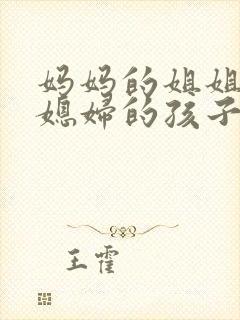 妈妈的姐姐
媳妇的孩子
王霍